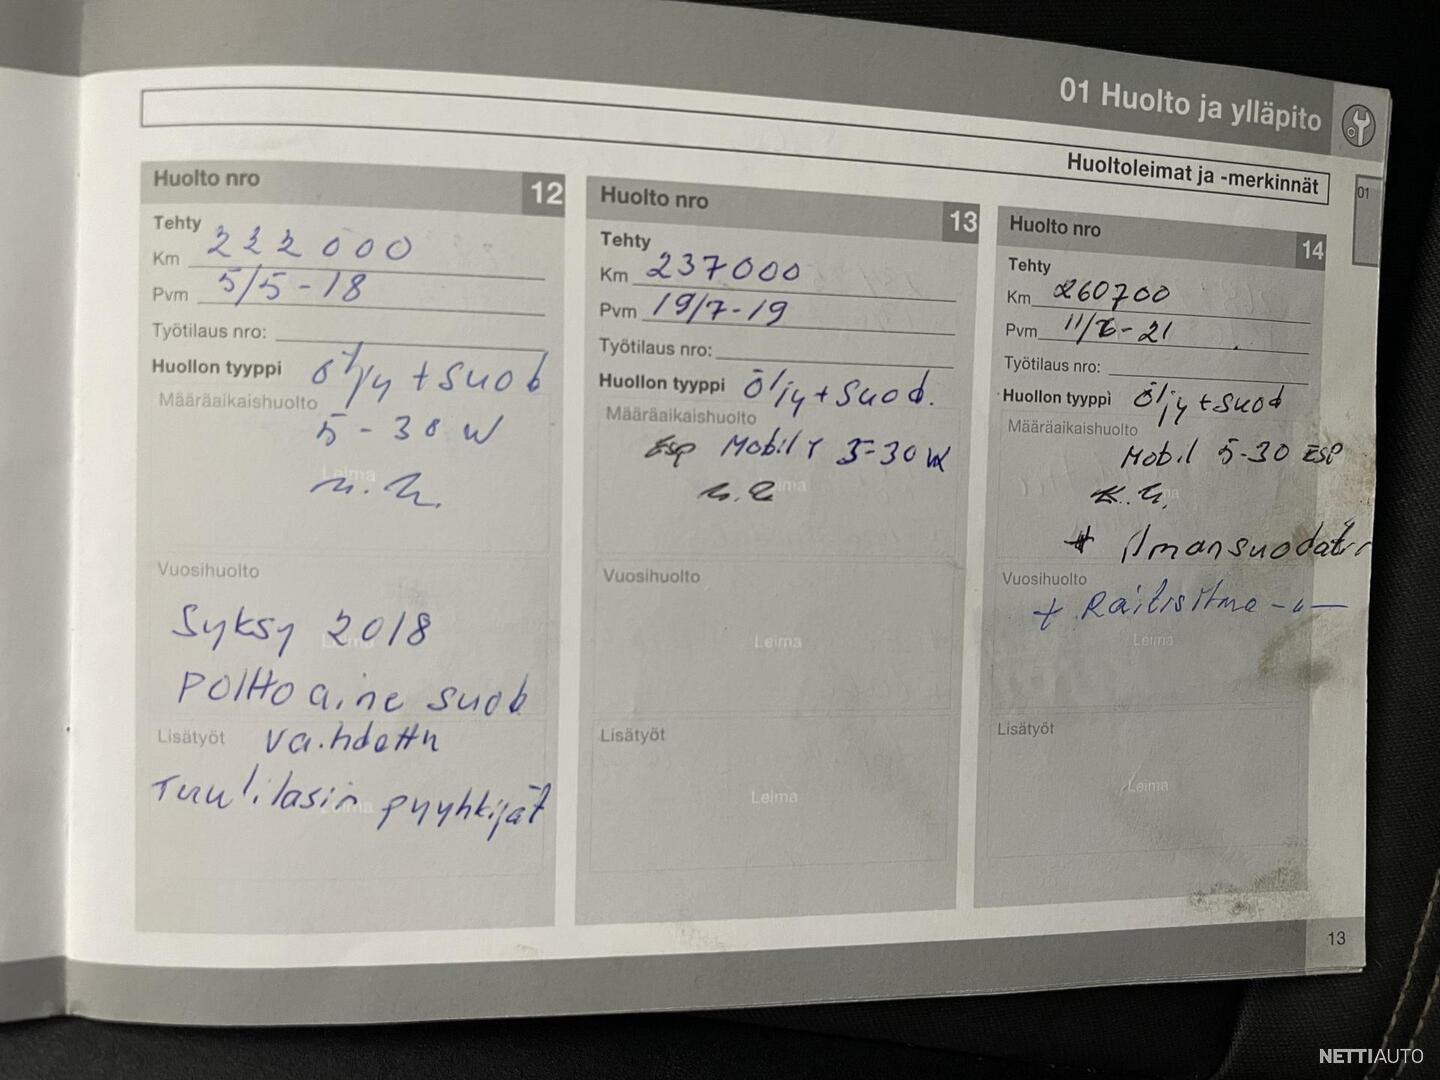 01 Huolto ja ylläpito
Huoltoleimat ja -merkinnät
01
Huolto nro 12
Tehty
Km 222 000
Pvm 5/5-18
Työtilaus nro:
Huollon tyyppi öljy + suod
Määräaikaishuolto
5-30 W
Leima
Vuosihuolto
Syksy 2018
Leima
Polttoaine suod
Lisätyöt vaihdettu
Tuulilasin pyyhkijät
Leima
Huolto nro 13
Tehty
Km 237000
Pvm 19/7-19
Työtilaus nro:
Huollon tyyppi Öljy + suod.
Määräaikaishuolto
ESP Mobil 1 5-30 W
Leima
Vuosihuolto
Leima
Lisätyöt
Leima
Huolto nro 14
Tehty
Km 260700
Pvm 11/6-21
Työtilaus nro:
Huollon tyyppi Öljy + suod
Määräaikaishuolto
Mobil 5-30 ESP
+ ilmansuodatin
Vuosihuolto
+ Raitisilma -"-
Leima
Lisätyöt
Leima
13
NETTIAUTO